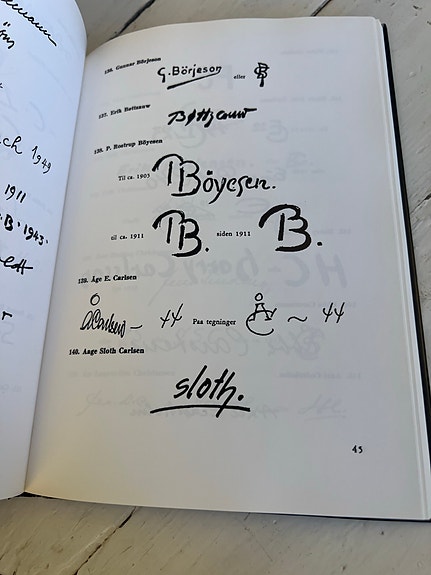 ch 1949
1911
"B" 1943.
136. Gunnar Börjeson
G. Börjeson eller
137. Erik Bottzauw
138. P. Rostrup Böyesen
Til ca. 1903 Böyesen.
til ca. 1911 B. siden 1911 B.
139. Åge E. Carlsen
44 Paa tegninger ~ 44
140. Aage Sloth Carlsen
sloth.
45